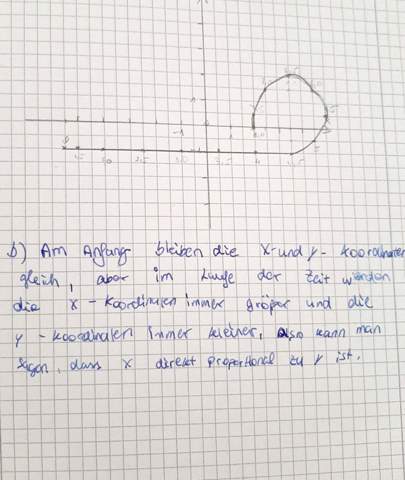 1
-1
0
1
b) Am Anfang bleiben die x-und y- Koordinaten
gleich, aber im Laufe der Zeit werden
die x - Koordinaten immer größer und die
y - Koordinaten immer kleiner, also kann man
sagen, dass x direkt proportional zu y ist.